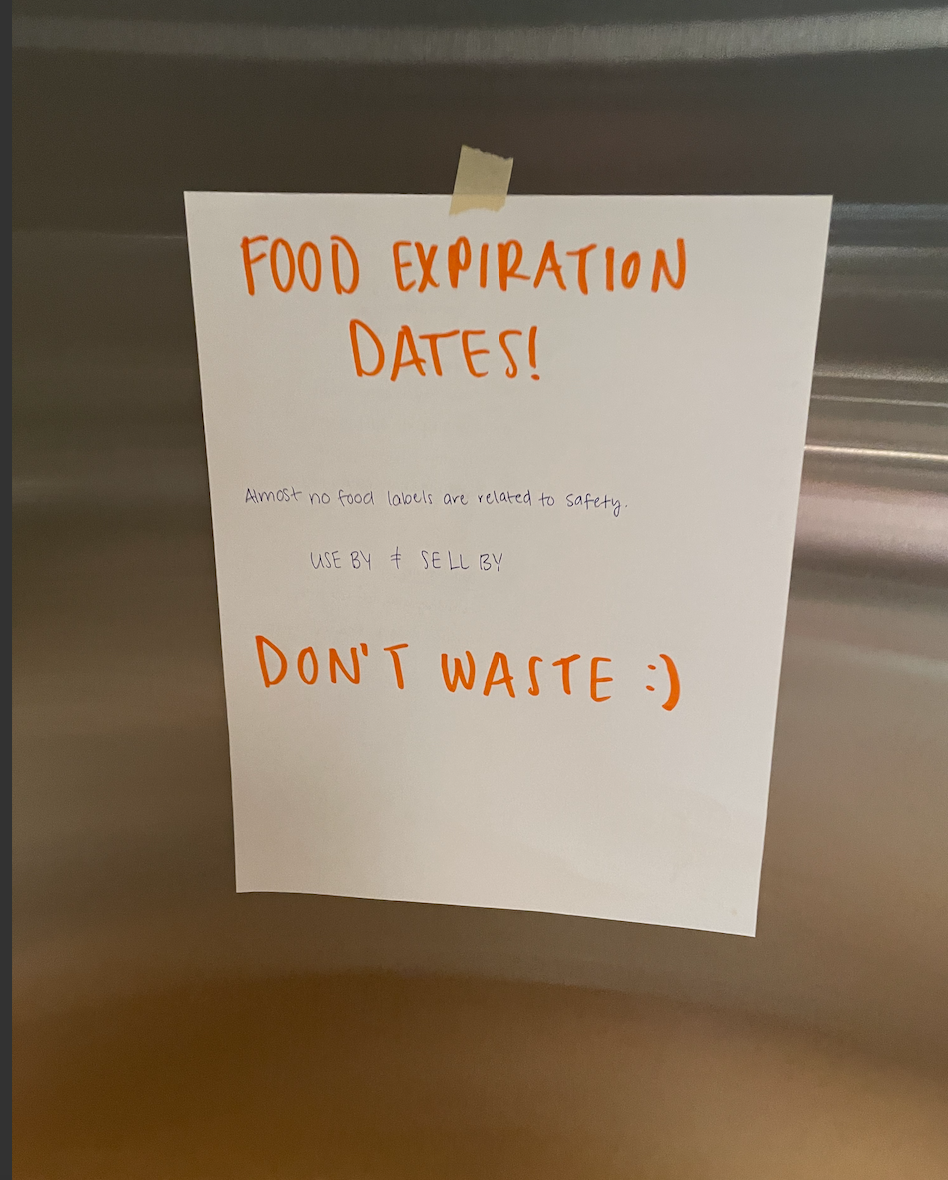 FOOD EXPIRATION
DATES!
Almost no food labels are related to safety.
USE BY ≠ SELL BY
DON'T WASTE :)